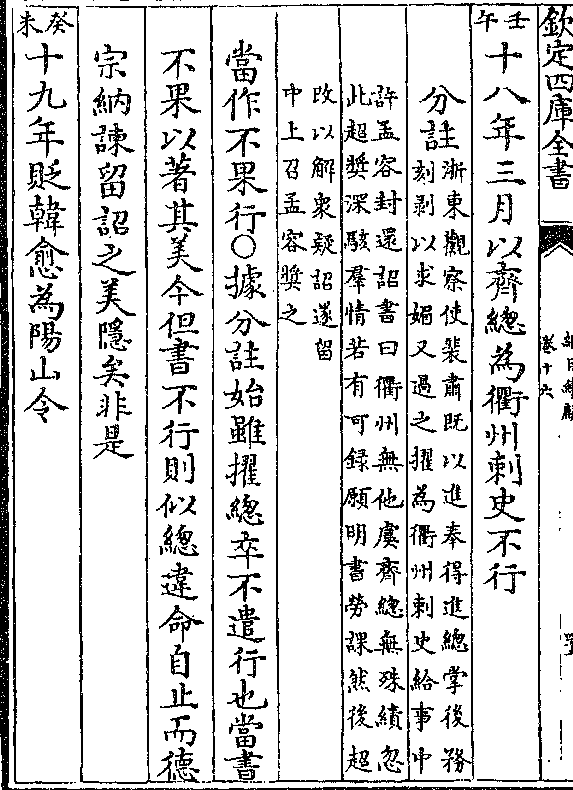 欽定四庫全書
卷十六
壬午
十八年三月以齊總為衢州刺史不行
分註
浙東觀察使裴肅既以進奉得進總掌後務
刻剥以求媚又過之擢為衢州刺史給事中
許孟容封還詔書曰衢州無他虞齊總無殊績忽
此超奬深駭羣情若有可錄願明書勞課然後超
改以解衆疑詔遂留
中上召孟容奬之
當作不果行○據分註始雖擢總卒不遣行也當書
不果以著其美今但書不行則似總違命自止而德
宗納諫留詔之美隱矣非是
癸未
十九年貶韓愈為陽山令